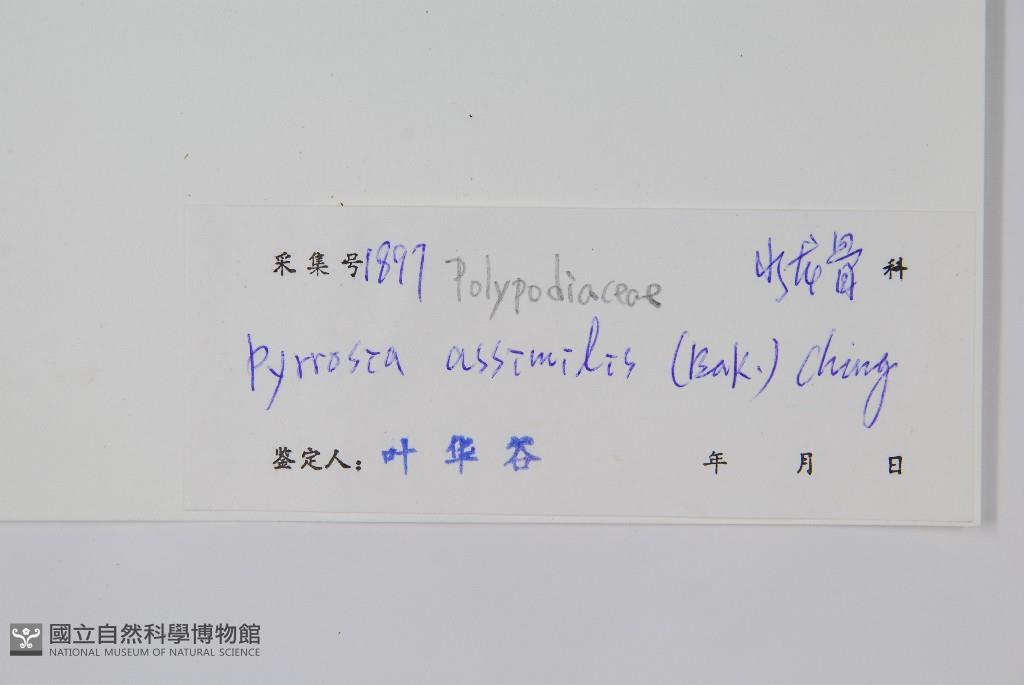 采集号1897 Polypodiaceae 水龙骨 科
Pyrrosia assimilis (Bak.) Ching
鉴定人: 叶华谷 年 月 日
國立自然科學博物館
NATIONAL MUSEUM OF NATURAL SCIENCE